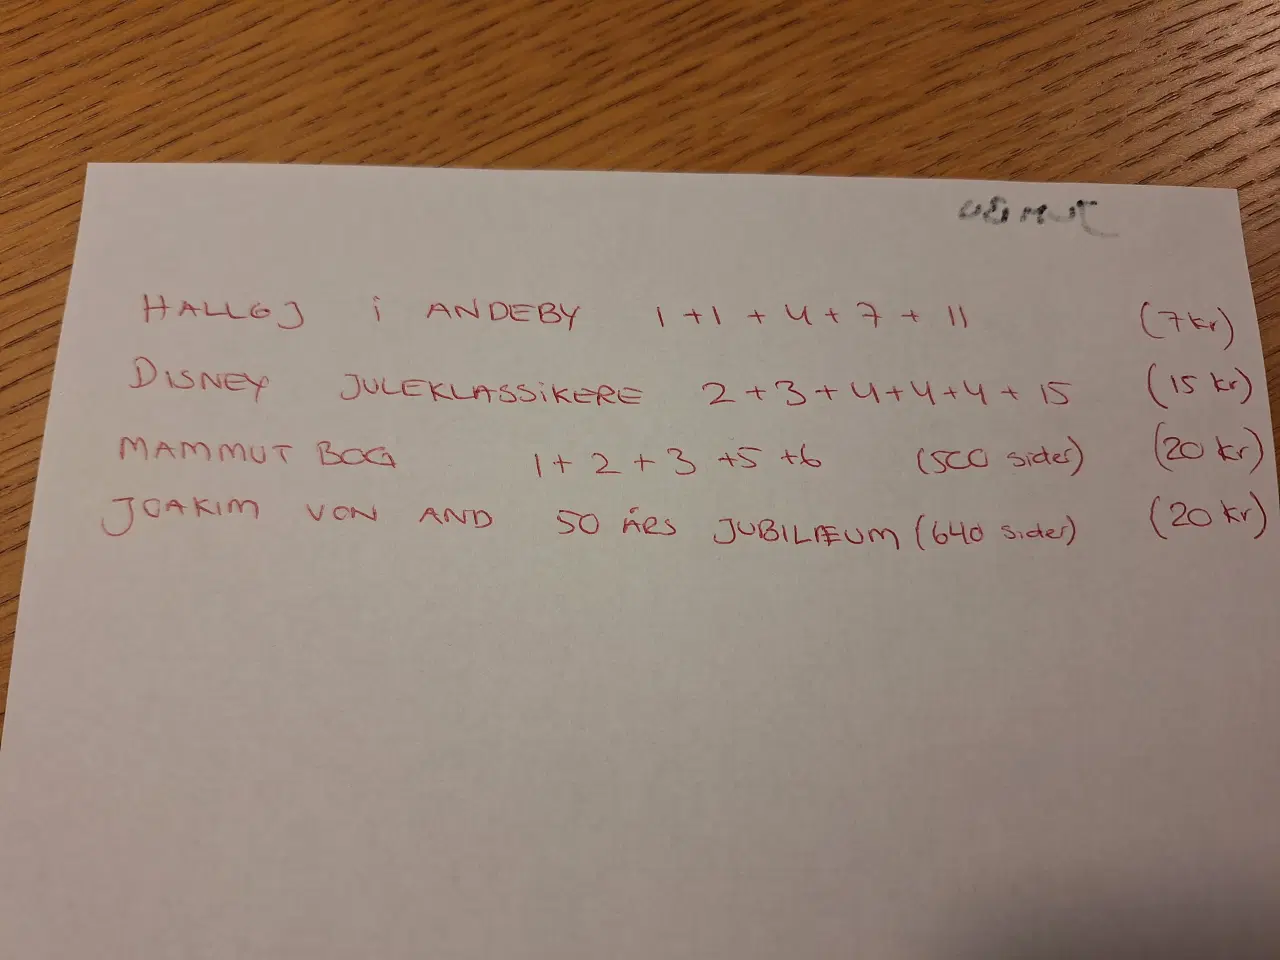 HALLØJ i ANDEBY 1+1+4+7+11 (7kr)
DISNEY JULEKLASSiKERE 2+3+4+4+4+15 (15 kr)
MAMMUT BOG 1+2+3+5+6 (500 sider) (20 kr)
JOAKIM VON AND 50 ÅRS JUBILÆUM (640 sider) (20 kr)